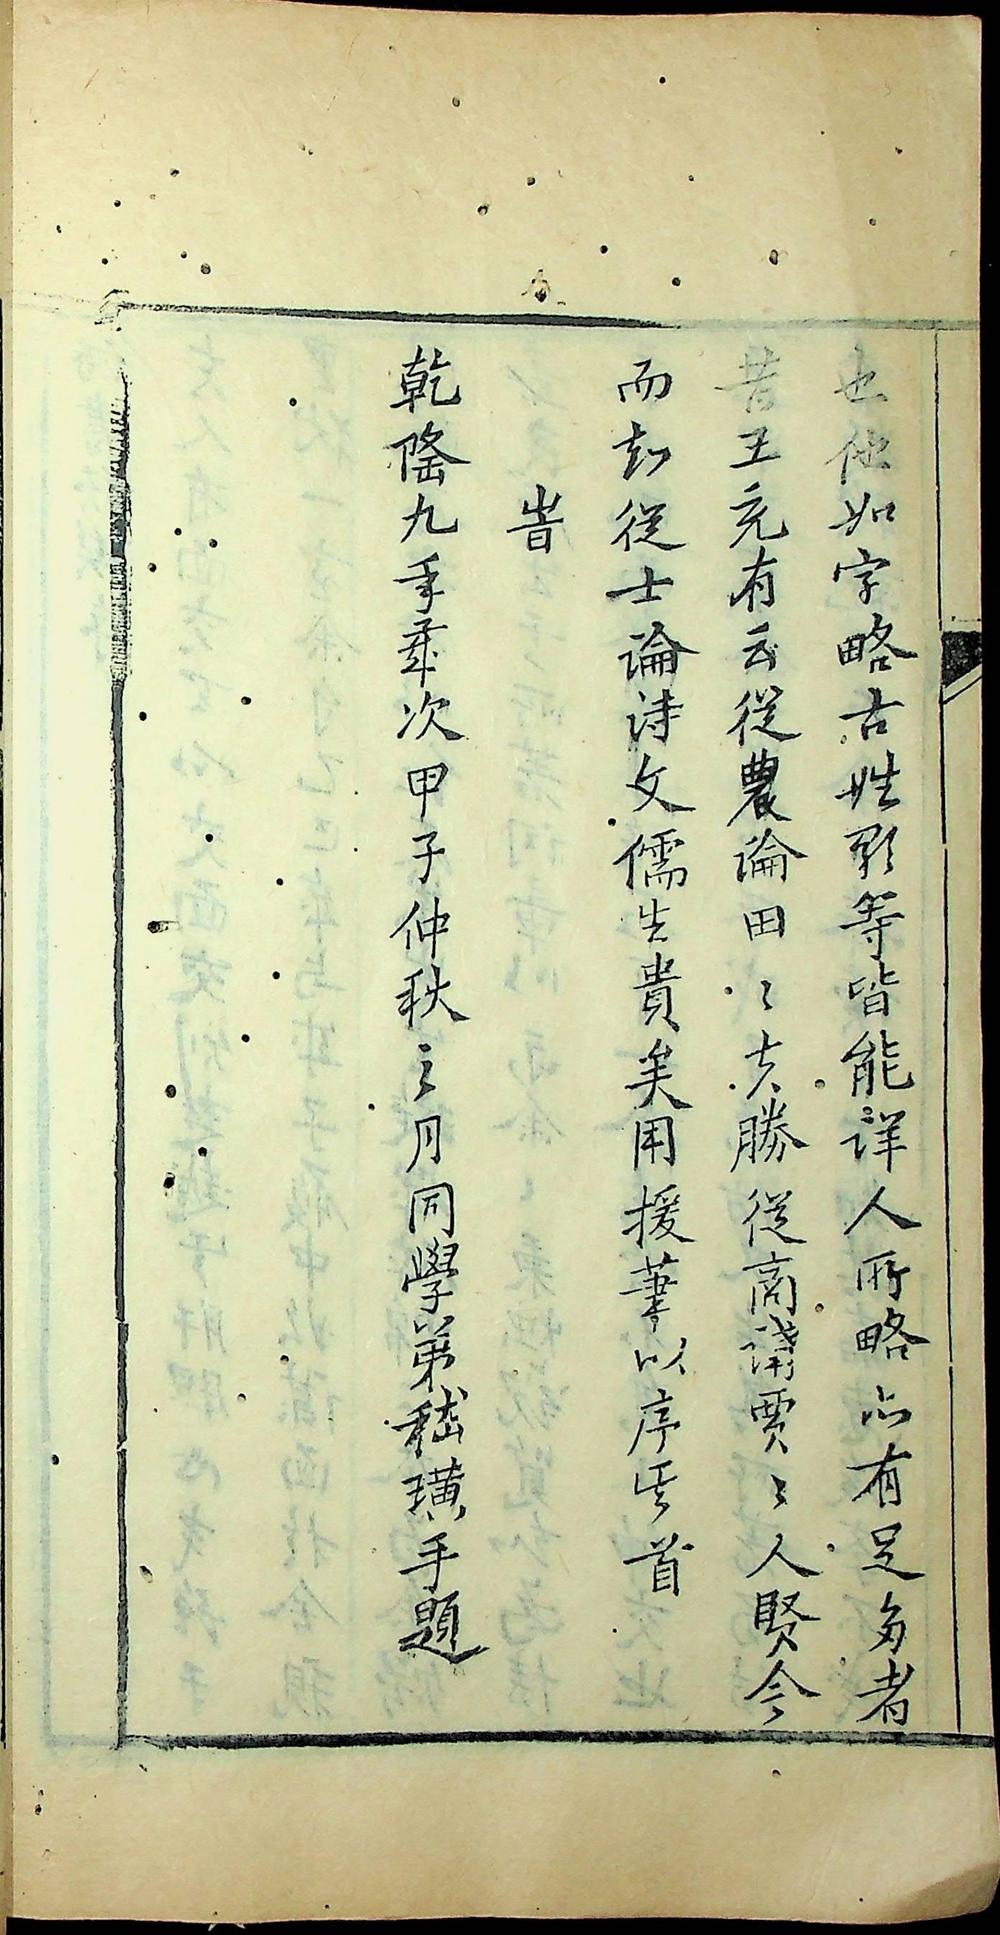 也他如字略古姓彰等皆能詳人所略亦有足多者
昔王充有云從農論田〻夫勝從商講賈〻人賢今
而知從士論詩文儒生貴矣用援筆以序其首
旹
乾隆九年歲次甲子仲秋之月同學弟嵇璜手題